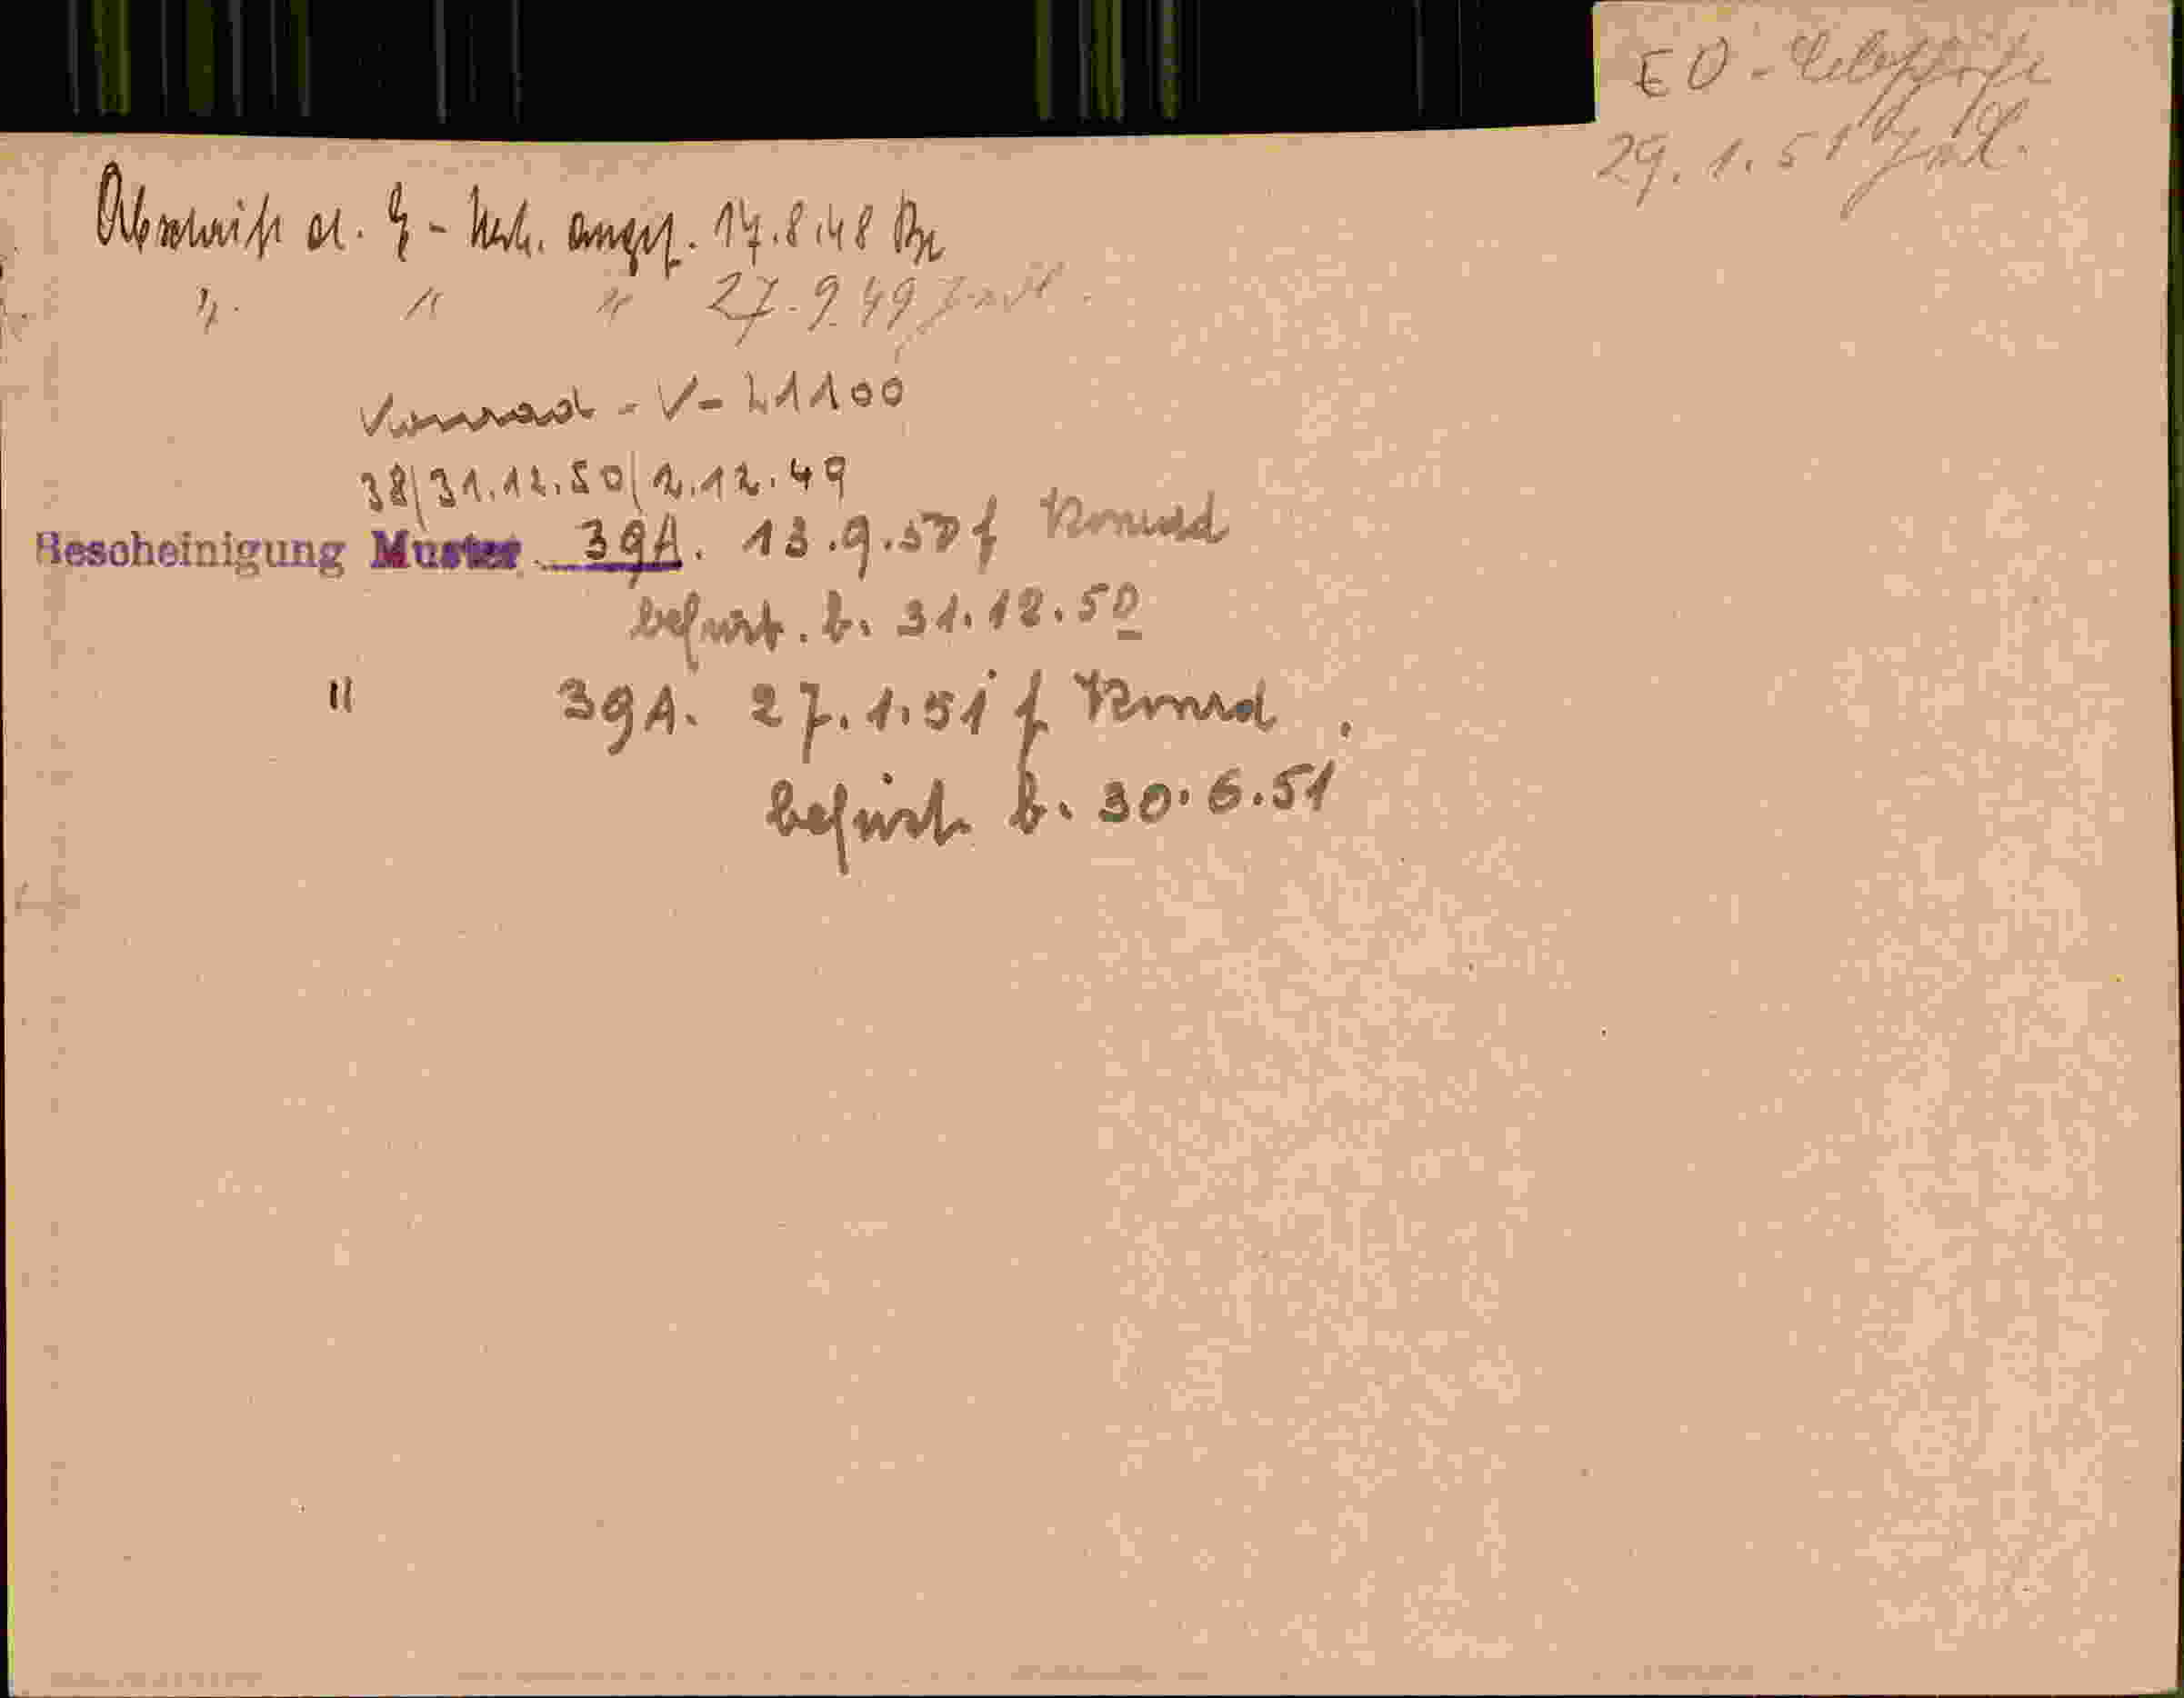 EO -
29. 1. 51
Abschrift d. E - Urk. angef. 17.8.48
" " " 27.9.49
Konrad - V - 21100
38/31.12.50/2.12.49
Bescheinigung Muster 39A. 13.9.50 f Konrad
befrist. b. 31.12.50
" 39A. 27.1.51 f Konrad
befrist. b. 30.6.51